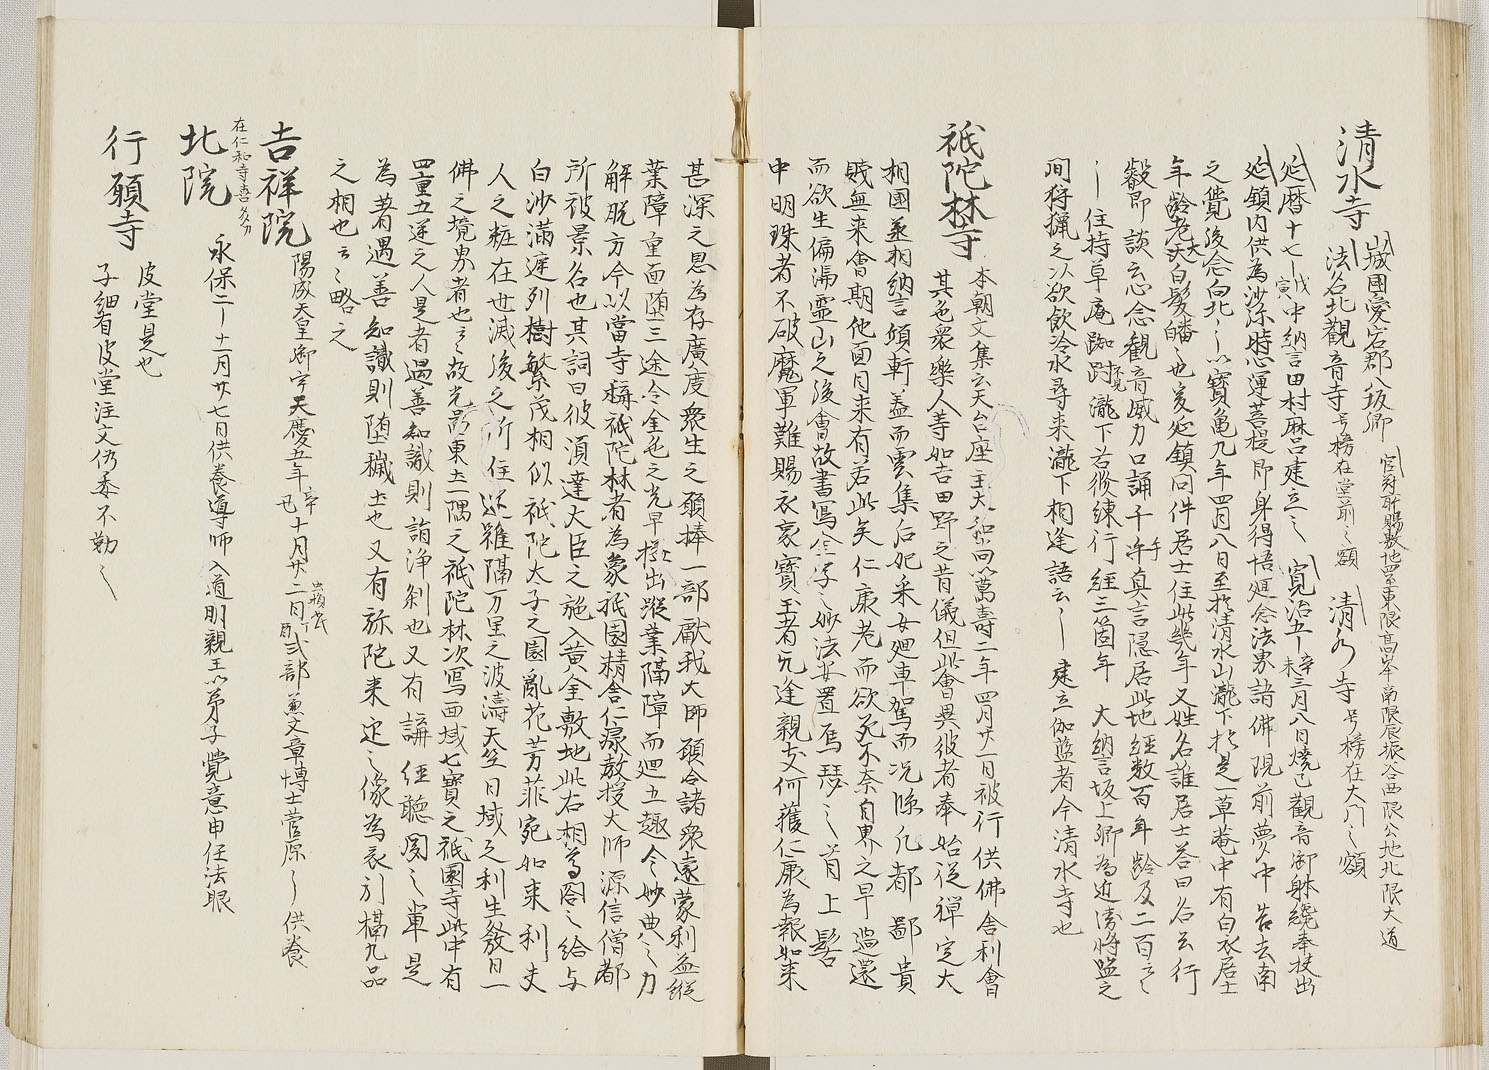 清水寺
山城國愛宕郡八坂郷 官符所賜敷地四至東限高峯南限辰振谷西限公地北限大道
法名北觀音寺 号榜在堂前之額 清水寺 号榜在大門之額
延暦十七〻戊寅中納言田村麻呂建立之 寛治五〻辛未三月八日燒亡觀音御躰纔奉扶出
延鎮内供為沙弥時心運菩提即身得悟廻念法界諸佛現前夢中告去南
之覺後念向北〻以寶龜九年四月八日至於清水山瀧下於是一草菴中有白衣居士
年齡老大白髪皤〻也爰延鎮問件居士住此幾年又姓名誰居士荅曰名云行
叡即談云心念觀音威力口誦千手真言隱居此地經数百年齡及二百云〻
〻住持草庵跏趺瀧下苦修練行經三箇年 大納言坂上卿為近衛將監之
間狩獵之次欲飲冷水尋来瀧下相逢語云〻建立伽藍者今清水寺也
祇陀林寺
本朝文集云天台座主大和尚以萬壽二年四月廿一日被行供佛舎利會
其色衆樂人等如吉田野之昔儀但此會異彼者奉始従禅定大
相國並相納言傾軒盖而雲集后妃采女廻車駕而況除凡都鄙貴
賎無来會期他面月来有若此矣仁康老而欲死不奈自界之早過還
而欲生偏漏靈山之後會故書寫金字之妙法安置馬瑟之首上髻
中明珠者不破魔軍難賜衣裏寶玉者冗逢親友何獲仁康為報如来
甚深之恩為存廣度衆生之願捧一部獻我大師願令諸衆遠蒙利益縱
業障重面堕三途令金色之光早極出蹤業隔障而廻五趣令妙典之力
解脱方今以當寺稱祇陀林者為象祇園精舎仁康教授大師源信僧都
所被景名也其詞曰彼須達大臣之施入黄金敷地此右相尊閤之給与
白沙滿遲列樹繁茂相似祇陀太子之園亂花芳菲宛如来利夫
人之粧在世滅後之所住運雖隔万里之波濤天竺日域之利生發日一
佛之境界者也云〻故光所東土一隅之祇陀林次寫西域七寶之祇園寺此中有
四重五逆之人是者遇善知識則詣浄刹也又有講經聴聞之輩是
為著遇善知識則堕穢土也又有弥陀来迎之像為表引攝九品
之相也云〻略之
吉祥院
陽成天皇御宇天慶五年辛丑十月廿二日 式部兼文章博士菅原〻供養
在仁和寺喜多
北院
永保二〻十一月廿七日供養導師入道明親王以弟子覺意申任法眼
行願寺
皮堂是也
子細有皮堂注文仍委不勤〻